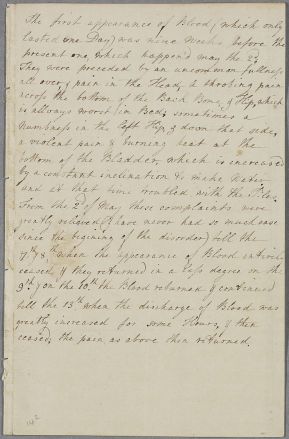 The first appearance of Blood, (which only
lasted one Day) was nine Weeks before the
present one, which happen'd May the 2d.
They were preceded by an uncommon fullness
all over, pain in the Head, a throbing pain
across the bottom of the Back Bone, & Hip, which
is allways worst in Bed, sometimes a
numbness in the left Hip, & down that side,
a violent pain & burning heat at the
bottom of the Bladder, which is increased
by a constant inclination to make Water
and at that time troubled with the
From the 2d of May these complaints were
greatly relieved (have never had so much ease
since the begining of the disorder) till the
7th & 8th when the appearance of Blood entirely
ceased, & they returned in a less degree on the
9th, on the 10th the Blood returned & continued
till the 13th when the discharge of Blood was
greatly increased for some Hours, & then
ceased, the pain as above then returned.